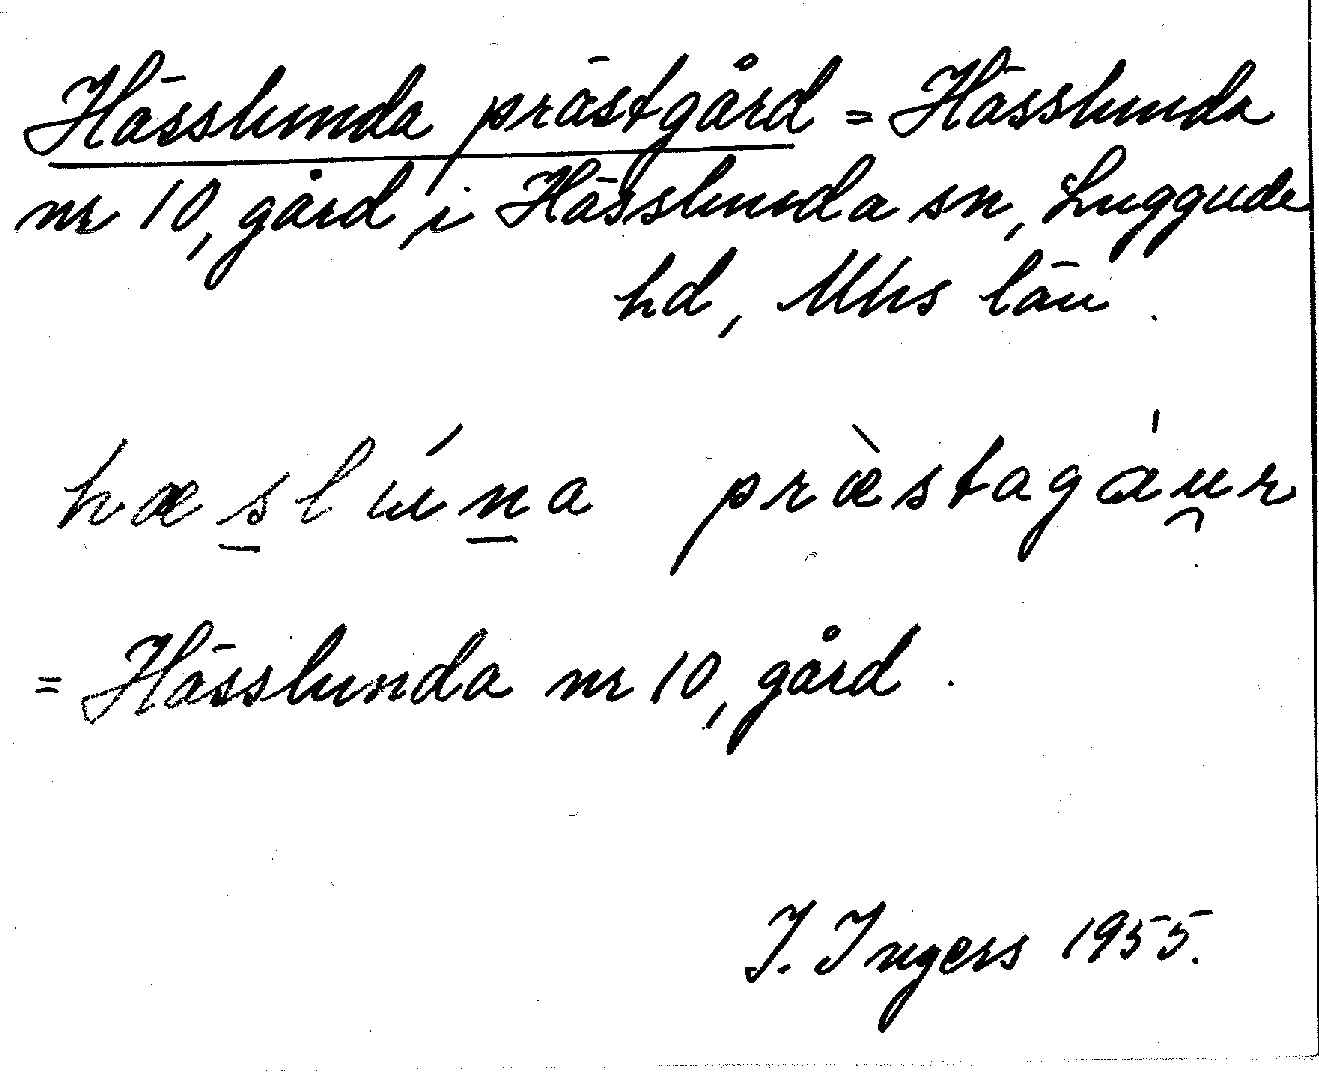 Hässlunda prästgård = Hässlunda
nr 10, gård i Hässlunda sn, Luggude
hd, Mhs län.
hæslúna præ̀stagáu̯r
= Hässlunda nr 10, gård.
I. Ingers 1955.